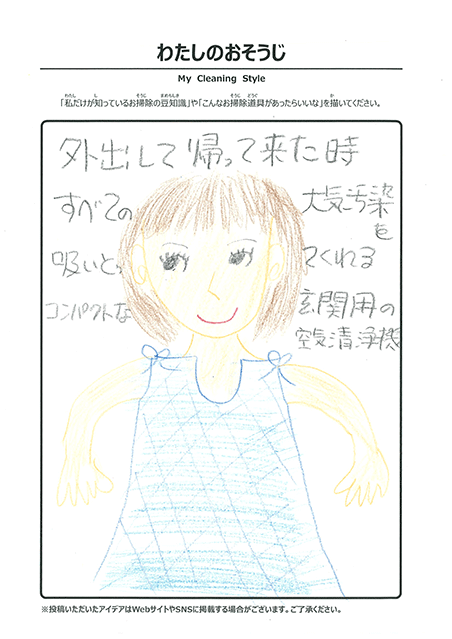 わたしのおそうじ
My Cleaning Style
「私だけが知っているお掃除の豆知識」や「こんなお掃除道具があったらいいな」を描いてください。
外出して帰って来た時
すべての 大気汚染を
吸いとってくれる
コンパクトな 玄関用の
空気清浄機
※投稿いただいたアイデアはWebサイトやSNSに掲載する場合がございます。ご了承ください。